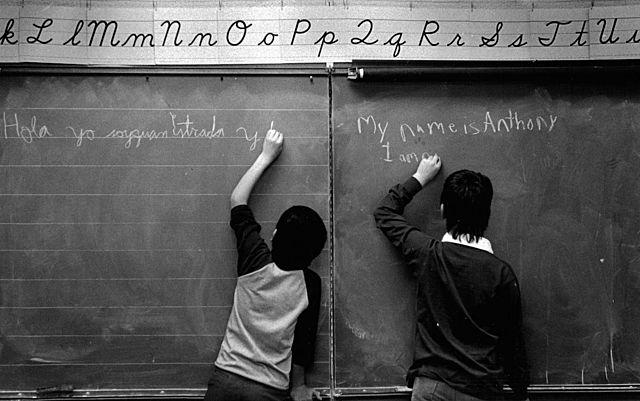 k L l M m N n O o P p Q q R r S s T t U u
Hola yo soy Juan Estrada y
My name is Anthony
I am